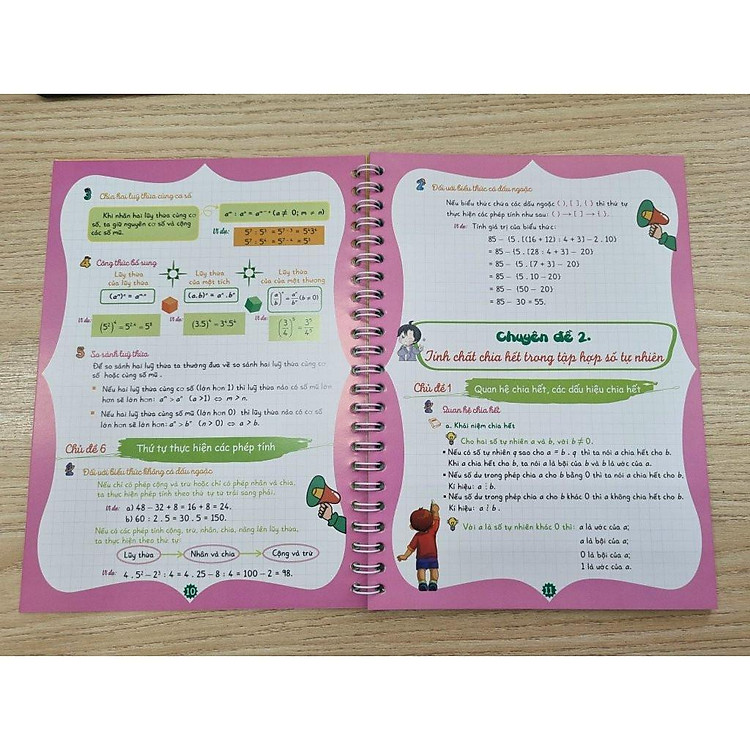 3 Chia hai luỹ thừa cùng cơ số
Khi nhân hai lũy thừa cùng cơ
số, ta giữ nguyên cơ số và cộng
các số mũ.
aᵐ : aⁿ = aᵐ⁻ⁿ (a ≠ 0; m ≠ n)
Ví dụ:
4 Công thức bổ sung
Lũy thừa
của lũy thừa
Lũy thừa
của một tích
Lũy thừa
của của một thương
(aᵐ)ⁿ = aᵐ·ⁿ
(a.b)ⁿ = aⁿ . bⁿ
(a/b)ⁿ = aⁿ/bⁿ (b ≠ 0)
Ví dụ:
Ví dụ:
(3.5)⁴ = 3⁴.5⁴
Ví dụ:
(3/4)⁵ = 3⁵/4⁵
5 So sánh luỹ thừa
Để so sánh hai luỹ thừa ta thường đưa về so sánh hai luỹ thừa cùng cơ
số hoặc cùng số mũ.
Nếu hai luỹ thừa cùng cơ số (lớn hơn 1) thì luỹ thừa nào có số mũ lớn
hơn sẽ lớn hơn: aᵐ > aⁿ (a > 1) ⇔ m > n.
Nếu hai luỹ thừa cùng số mũ (lớn hơn 0) thì luỹ thừa nào có cơ số
lớn hơn sẽ lớn hơn: aⁿ > bⁿ (n > 0) ⇔ a > b.
Chủ đề 6 Thứ tự thực hiện các phép tính
1 Đối với biểu thức không có dấu ngoặc
Nếu chỉ có phép cộng và trừ hoặc chỉ có phép nhân và chia,
ta thực hiện phép tính theo thứ tự từ trái sang phải.
Ví dụ: a) 48 – 32 + 8 = 16 + 8 = 24.
b) 60 : 2 . 5 = 30 . 5 = 150.
Nếu có các phép tính cộng, trừ, nhân, chia, nâng lên lũy thừa,
ta thực hiện theo thứ tự:
Lũy thừa → Nhân và chia → Cộng và trừ
Ví dụ: 4 . 5² – 2³ : 4 = 4 . 25 – 8 : 4 = 100 – 2 = 98.
10
2 Đối với biểu thức có dấu ngoặc
Nếu biểu thức chứa các dấu ngoặc ( ), [ ], { } thì thứ tự
thực hiện các phép tính như sau: ( ) → [ ] → { }.
Ví dụ: Tính giá trị của biểu thức:
85 – {5 . [(16 + 12) : 4 + 3] – 2 . 10}
= 85 – {5 . [28 : 4 + 3] – 20}
= 85 – {5 . [7 + 3] – 20}
= 85 – {5 . 10 – 20}
= 85 – {50 – 20}
= 85 – 30 = 55.
Chuyên đề 2.
Tính chất chia hết trong tập hợp số tự nhiên
Chủ đề 1 Quan hệ chia hết, các dấu hiệu chia hết
1 Quan hệ chia hết
a. Khái niệm chia hết
Cho hai số tự nhiên a và b, với b ≠ 0.
• Nếu có số tự nhiên q sao cho a = b . q thì ta nói a chia hết cho b.
Khi a chia hết cho b, ta nói a là bội của b và b là ước của a.
• Nếu số dư trong phép chia a cho b bằng 0 thì ta nói a chia hết cho b,
Kí hiệu: a ⋮ b.
• Nếu số dư trong phép chia a cho b khác 0 thì a không chia hết cho b,
Kí hiệu: a ⋮̸ b.
Với a là số tự nhiên khác 0 thì: a là ước của a;
a là bội của a;
0 là bội của a;
1 là ước của a.
11